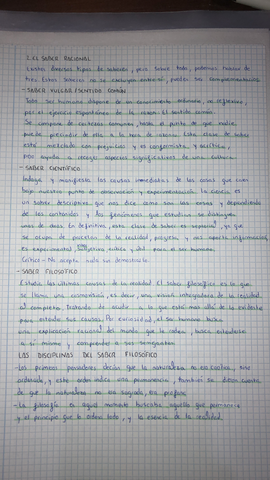 1. EL SABER RACIONAL
Existen diversos tipos de saberes, pero sobre todo, podemos hablar de
tres. Estos saberes no se excluyen entre sí, pueden ser complementarios.
- SABER VULGAR / SENTIDO COMÚN
Todo ser humano dispone de un conocimiento ordinario, no reflexivo,
por el ejercicio espontáneo de la razón: El sentido común.
Se compone de certezas comunes, hasta el punto de que nadie
puede prescindir de ellas a la hora de Esta clase de saber
está mezclado con prejuicios y es conformista, y acrítico,
pero ayuda a recoger aspectos significativos de una cultura.
- SABER CIENTÍFICO
Indaga y manifiesta las causas inmediatas de las cosas que caen
bajo nuestro punto de observación y experimentación. La ciencia es
un saber descriptivo que nos dice cómo son las cosas y dependiendo
de los contenidos y los fenómenos que estudian se distinguen
unas de otras. En definitiva, esta clase de saber es sectorial, ya que
se ocupa de parcelas de la realidad, progresa y nos aporta información,
es experimental, crítica y útil para el ser humano.
Crítico - No acepta nada sin demostrarlo.
- SABER FILOSÓFICO
Estudia las últimas causas de la realidad. El saber filosófico es lo que
se llama una cosmovisión, es decir, una visión integradora de la realidad
al completo, tratando de acudir a lo que está más allá de lo evidente
para entender sus causas. Por curiosidad, el ser humano busca
una explicación racional del mundo que le rodea, busca entenderse
a sí mismo y comprender a sus semejantes.
LAS DISCIPLINAS DEL SABER FILOSÓFICO
- Los primeros pensadores decían que la naturaleza no era caótica, sino
ordenada, y este orden indica una permanencia, también se dieron cuenta
de que la naturaleza no era sagrada, era profana.
- La filosofía es aquel momento buscaba aquello que permanecía
y el principio que lo ordena todo, y la esencia de la realidad.